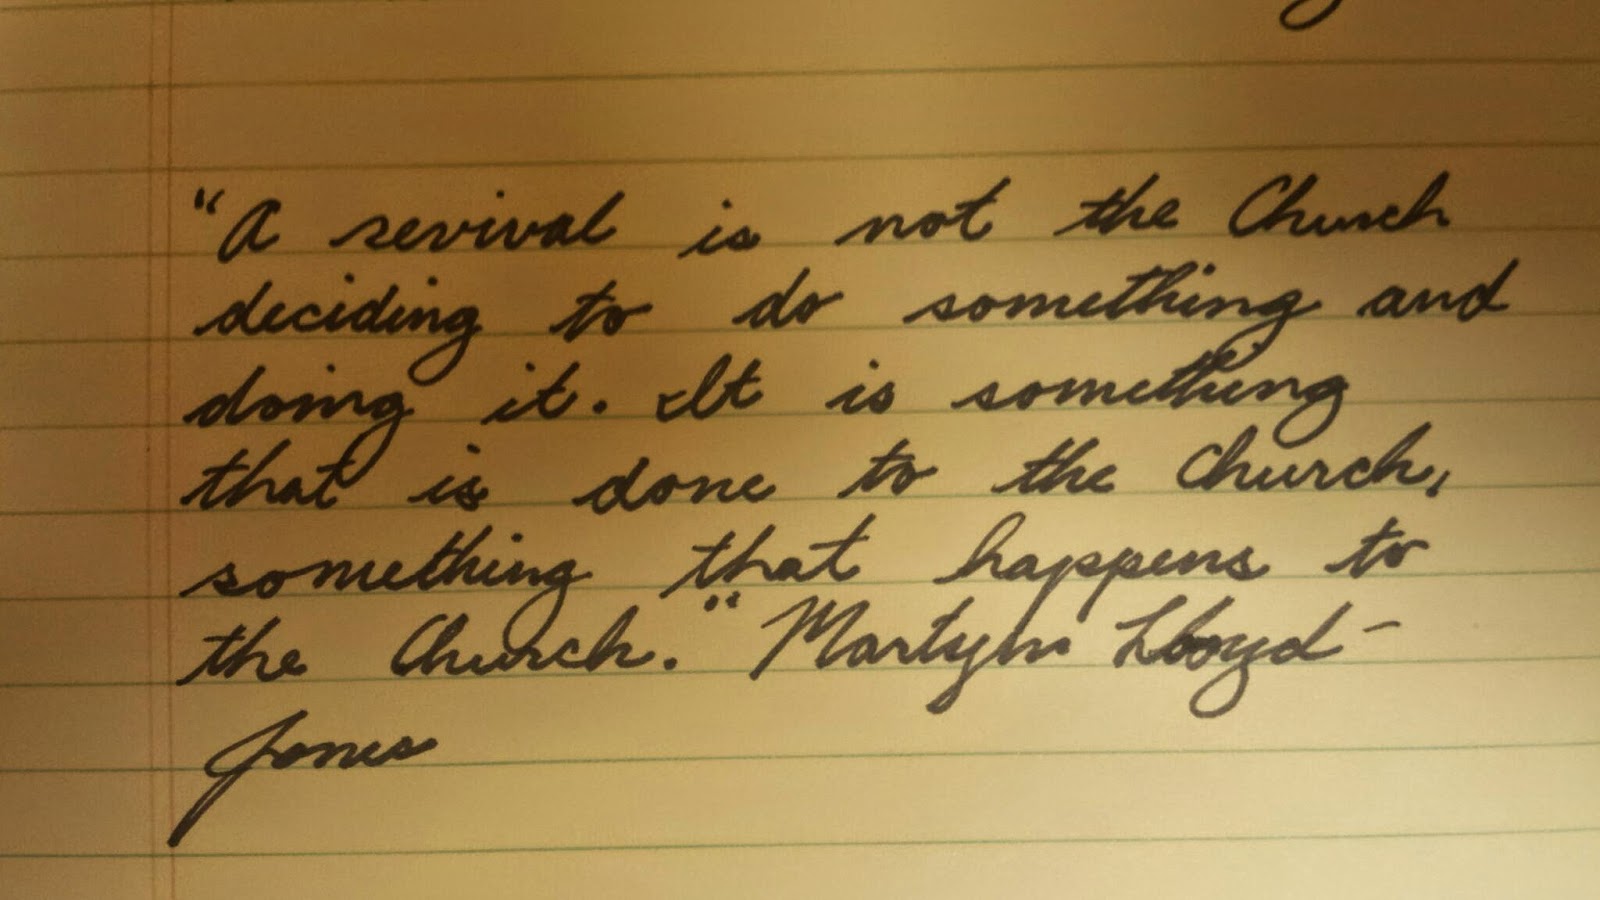 "A revival is not the Church
deciding to do something and
doing it. It is something
that is done to the Church,
something that happens to
the Church." Martyn Lloyd-
Jones